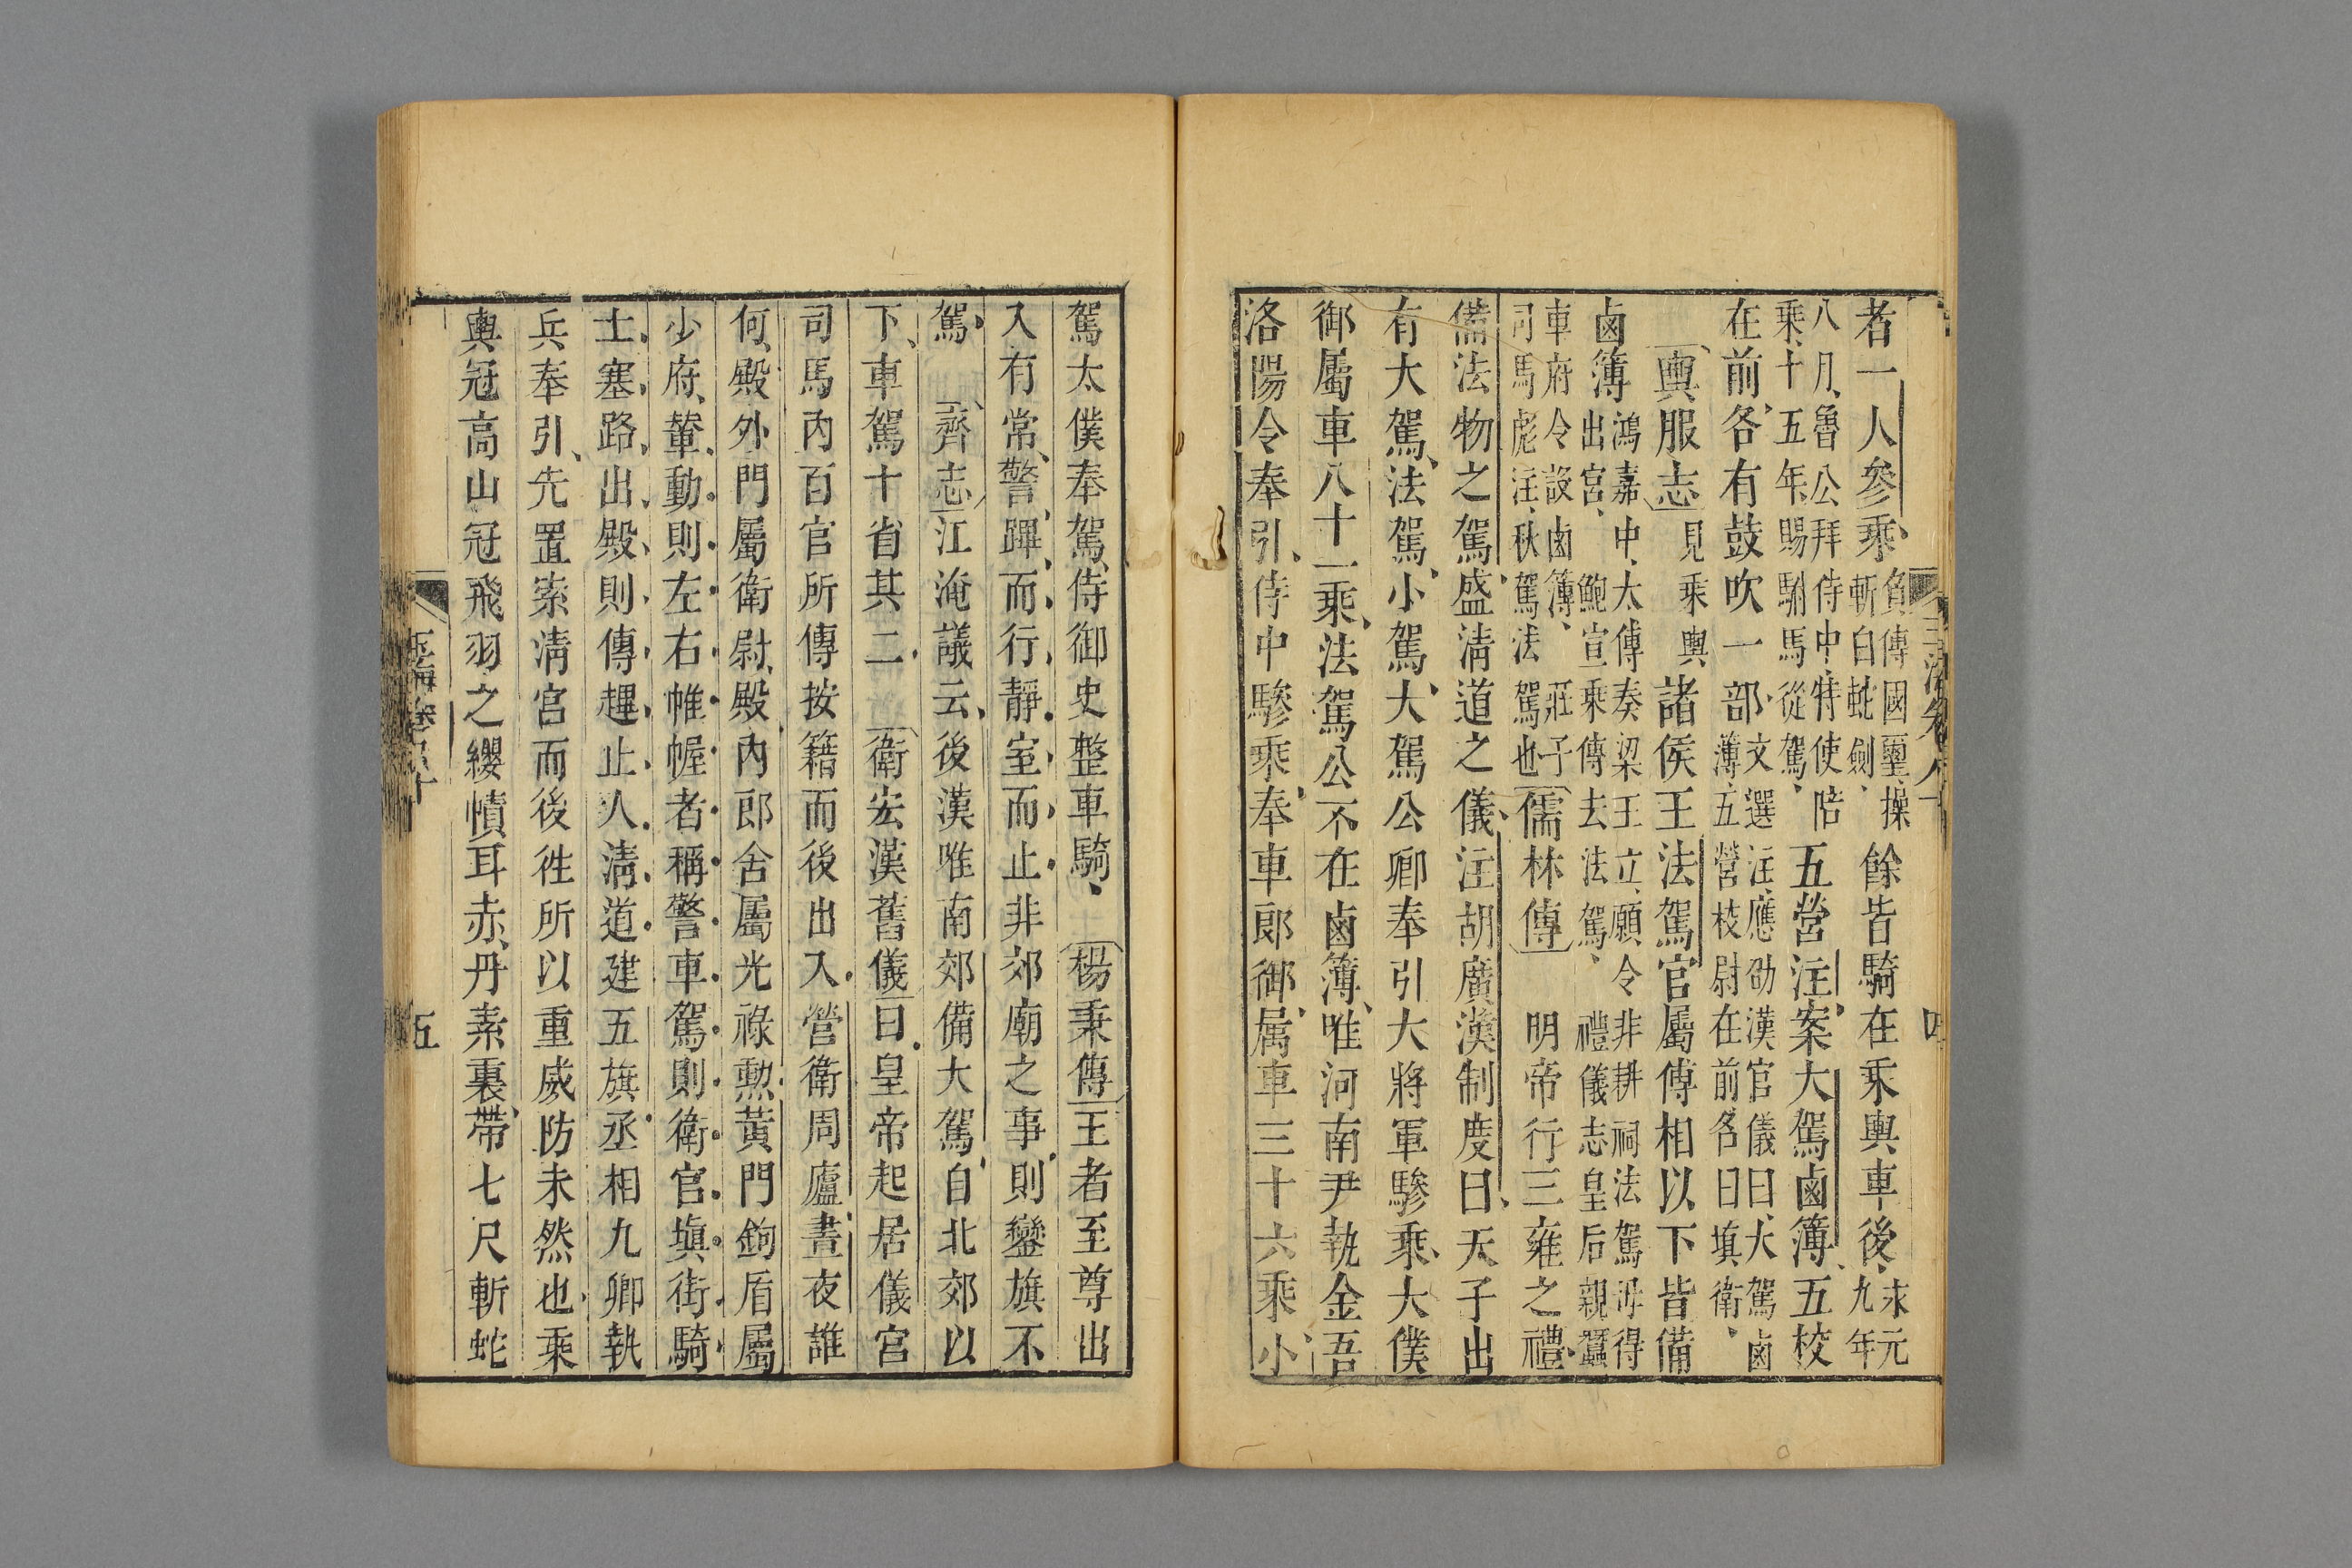 者一人參乘負傳國璽操斬白蛇劍餘皆騎在乘輿車後永元九年
八月魯公拜侍中特使陪乘十五年賜駙馬從駕五營注案大駕鹵簿五校
在前各有鼓吹一部文選注應劭漢官儀曰大駕鹵簿五營校尉在前名曰填衛
輿服志見乘輿諸侯王法駕官屬傅相以下皆備
鹵簿鴻嘉中太傅奏梁王立願令非耕祠法駕毋得出宮鮑宣乘傳去法駕禮儀志皇后親蠶
車府令設鹵簿莊子司馬彪注秋駕法駕也儒林傳明帝行三雍之禮
備法物之駕盛清道之儀注胡廣漢制度曰天子出
有大駕法駕小駕大駕公卿奉引大將軍驂乘大僕
御屬車八十一乘法駕公不在鹵簿唯河南尹執金吾
洛陽令奉引侍中驂乘奉車郎御属車三十六乘小
駕太僕奉駕侍御史整車騎楊秉傳王者至尊出
入有常警蹕而行靜室而止非郊廟之事則鑾旗不
駕齊志江淹議云後漢唯南郊備大駕自北郊以
下車駕十省其二衛宏漢舊儀曰皇帝起居儀宮
司馬內百官所傳按籍而後出入營衛周廬晝夜誰
何殿外門屬衛尉殿內郎舍屬光祿勲黃門鉤盾屬
少府輦動則左右帷幄者稱警車駕則衛官填街騎
士塞路出殿則傳趩止人清道建五旗丞相九卿執
兵奉引先置索清宮而後徃所以重威防未然也乘
輿冠高山冠飛羽之纓幘耳赤丹素裏帶七尺斬蛇
五